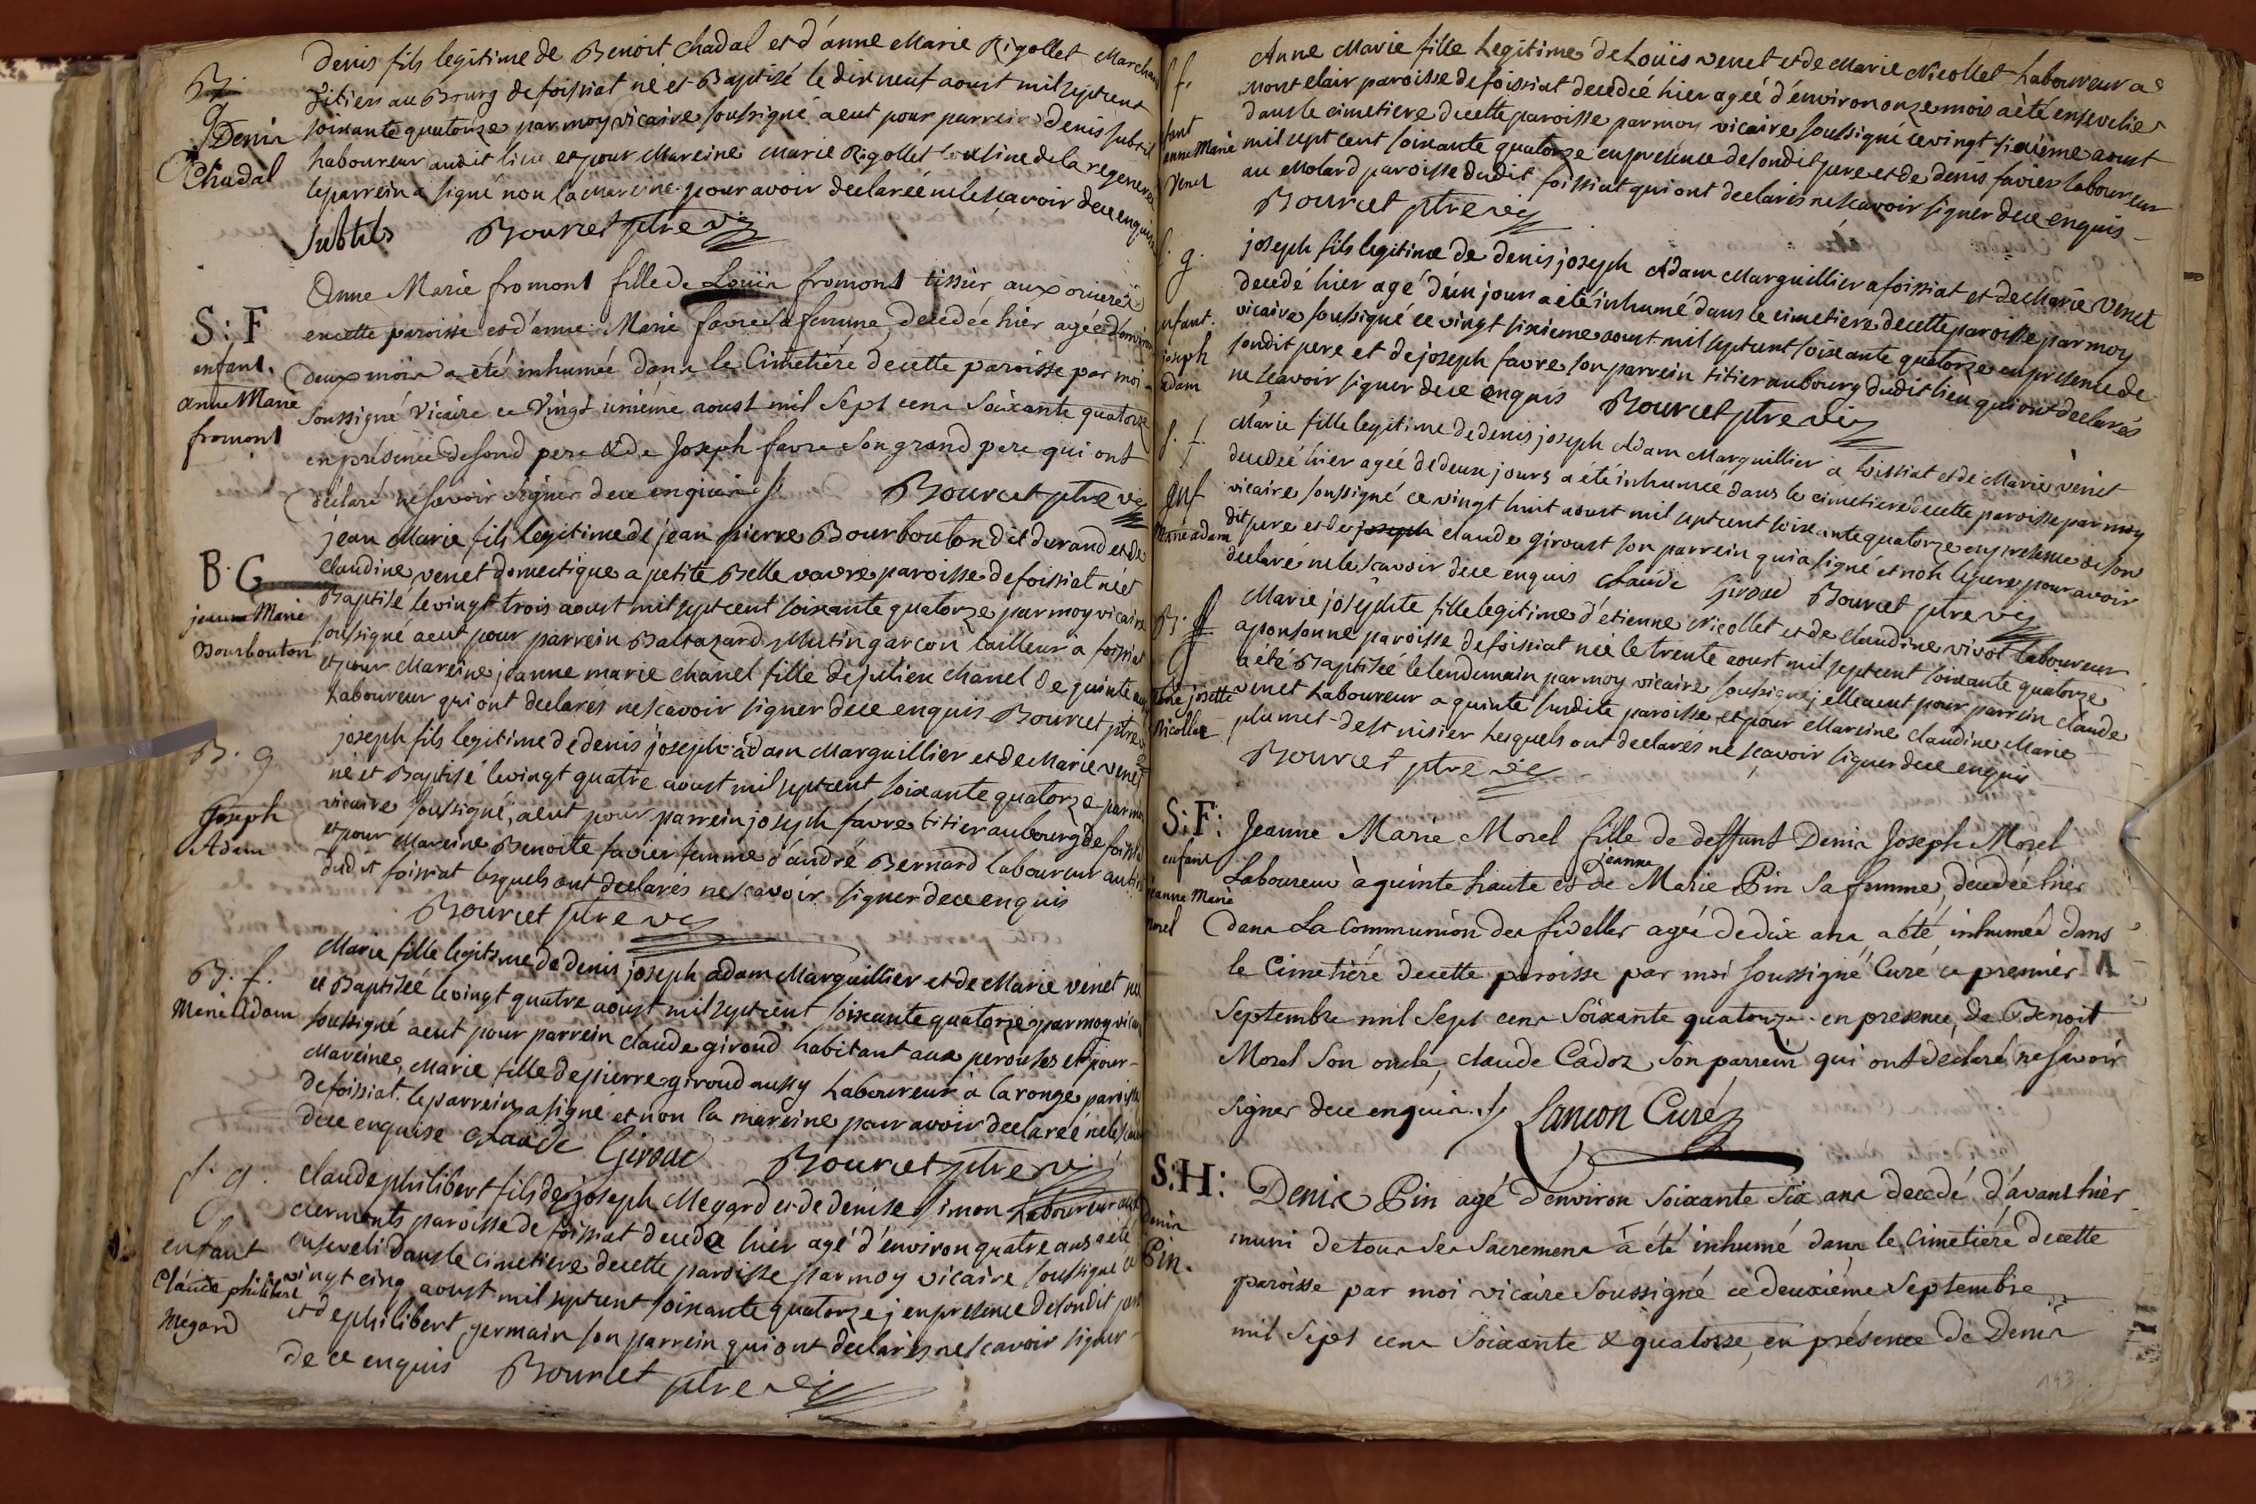 B.
g
Denis
Chadal
Denis fils legitime de Benoit Chadal et d'anne Marie Rigollet Marchand
titiers au Bourg de foissiat né et Baptisé le dix neuf aoust mil septcent
soixante quatorze par moy vicaire soussigné aeut pour parrein Denis subtil
Laboureur audit lieu et pour Mareine Marie Rigollet cousine de la regeneré
le parrein a signé non la Mareine pour avoir declareé ne le scavoir dece enquise
Subtils Bourcet ptre vic
S: F
enfant.
anne Marie
fromont
Anne Marie fromont fille de Louïs fromont tissier aux
en cette paroisse et d'anne Marie favre sa femme, decedée hier agée d'environ
deux mois a été inhumée dans le Cimetiére de cette paroisse par moi
soussigné vicaire ce vingt unieme aoust mil sept cens soixante quatorze
en présence de sond pere & de Joseph favre son grand pere qui ont
déclaré ne savoir signer dece enquis Bourcet ptre vic
B. G
jean Marie
Bourbouton
jean Marie fils legitime de jean pierre Bourbouton dit durand et de
claudine venet domestique a petite Belle vavre paroisse de foissiat né et
Baptisé le vingt trois aoust mil septcent soixante quatorze par moy vicaire
soussigné aeut pour parrein Baltazard Mutin garcon tailleur a foissiat
et pour Mareine jeanne marie chanel fille de julien chanel de quinte
Laboureur qui ont declarés ne scavoir signer dece enquis Bourcet ptre
B. g
Joseph
Adam
joseph fils legitime de denis joseph adam Marguillier et de Marie venet
né et Baptisé le vingt quatre aoust mil septcent soixante quatorze par moy
vicaire soussigné, aeut pour parrein joseph favre titier au bourg de foissiat
et pour Mareine Benoite favier femme d'andré Bernard laboureur au
dudit foissiat lesquels ont declarés ne scavoir signer dece enquis
Bourcet ptre vic
B. f.
Marie Adam
Marie fille legitime de denis joseph adam Marguillier et de Marie venet née
et Baptisée le vingt quatre aoust mil septcent soixante quatorze par moy vicaire
soussigné aeut pour parrein claude giroud habitant aux perouses et pour
Mareine, Marie fille de pierre giroud aussy Laboureur à la ronge paroisse
de foissiat. le parrein a signé et non la mareine pour avoir declareé ne le scavoir
dece enquise Claude Giroud Bourcet ptre vic
S. g.
enfant
Claude philibert
Megard
claude philibert fils de joseph Megard et de denise simon Laboureur aux
clermonts paroisse de foissiat decedé hier agé d'environ quatre ans a été
enseveli dans le cimetiere de cette paroisse par moy vicaire soussigné ce
vingt cinq aoust mil septcent soixante quatorze, en presence de sondit pere
et de philibert germain son parrein qui ont declarés ne scavoir signer
de ce enquis Bourcet ptre vic
S. f.
anne Marie
Venet
Anne Marie fille Legitime de Loüis venet et de Marie Nicollet Laboureur a
Mont clair paroisse de foissiat decedeé hier ageé d'environ onze mois a été ensevelie
dans le cimetiere de cette paroisse par moy vicaire soussigné ce vingt sixieme aoust
mil sept cent soixante quatorze en presence de sondit pere et de denis favier laboureur
au Molard paroisse dudit foissiat qui ont declarés ne scavoir signer dece enquis
Bourcet ptre vic
S. g.
enfant.
joseph
adam
joseph fils legitime de denis joseph Adam Marguillier a foissiat et de Marie Venet
decedé hier agé d'un jour a été inhumé dans le cimetiere de cette paroisse par moy
vicaire soussigné ce vingt sixieme aoust mil septcent soixante quatorze en presence de
sondit pere et de joseph favre son parrein titier au bourg dudit lieu qui ont declarés
ne scavoir signer dece enquis Bourcet ptre vic
S. f.
enf
Marie adam
Marie fille legitime de denis joseph Adam Marguillier a foissiat et de Marie venet
decedeé hier ageé de deux jours a été inhumee dans le cimetiere de cette paroisse par moy
vicaire soussigné ce vingt huit aoust mil septcent soixante quatorze en presence de son
dit pere et de joseph claude giroust son parrein qui a signé et non le pere pour avoir
declaré ne le scavoir dece enquis Claude Giroud Bourcet ptre vic
B. f
Marie josette
Nicollet
Marie josephte fille legitime d'etienne Nicollet et de claudine vivot laboureur
a ponsonne paroisse de foissiat neé le trente aoust mil septcent soixante quatorze
a été Baptisée le lendemain par moy vicaire soussigné; elle aeut pour parrein claude
venet Laboureur a quinte susdite paroisse, et pour Mareine claudine Marie
plumet de st nisier Lesquels ont declarés ne scavoir signer dece enquis
Bourcet ptre vic
S: F:
enfant
jeanne Marie
morel
Jeanne Marie Morel fille de deffunt Denis Joseph Morel
Laboureur à quinte haute et de jeanne Marie Pin sa femme, decedée hier
dans La Communion des fidelles agée de dix ans a été inhumée dans
le Cimetiére de cette paroisse par moi soussigné Curé ce premier
Septembre mil Sept cens soixante quatorze en presence, de Benoit
Morel son oncle, claude Cadoz son parrein qui ont déclaré ne savoir
signer dece enquis. Lancon Curé
S: H:
Denis
Pin.
Denis Pin agé d'environ soixante six ans decedé d'avant hier
muni de tous ses Sacremens à été inhumé dans le Cimetiére de cette
paroisse par moi vicaire soussigné ce deuxiéme septembre
mil sept cens soixante & quatorze, en présence de Denis
143